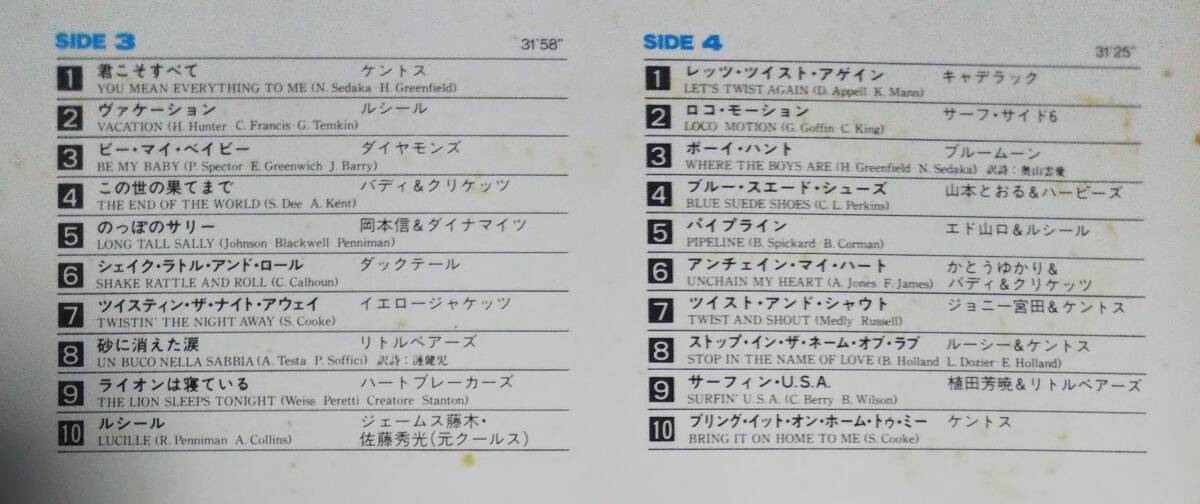 SIDE 3 31'58"
1 君こそすべて ケントス
YOU MEAN EVERYTHING TO ME (N. Sedaka H. Greenfield)
2 ヴァケーション ルシール
VACATION (H. Hunter C. Francis G. Temkin)
3 ビー・マイ・ベイビー ダイヤモンズ
BE MY BABY (P. Spector E. Greenwich J. Barry)
4 この世の果てまで バディ&クリケッツ
THE END OF THE WORLD (S. Dee A. Kent)
5 のっぽのサリー 岡本信&ダイナマイツ
LONG TALL SALLY (Johnson Blackwell Penniman)
6 シェイク・ラトル・アンド・ロール ダックテール
SHAKE RATTLE AND ROLL (C. Calhoun)
7 ツイスティン・ザ・ナイト・アウェイ イエロージャケッツ
TWISTIN' THE NIGHT AWAY (S. Cooke)
8 砂に消えた涙 リトルベアーズ
UN BUCO NELLA SABBIA (A. Testa P. Soffici) 訳詩:漣健児
9 ライオンは寝ている ハートブレーカーズ
THE LION SLEEPS TONIGHT (Weiss Peretti Creatore Stanton)
10 ルシール ジェームス藤木・
LUCILLE (R. Penniman A. Collins) 佐藤秀光(元クールス)
SIDE 4 31'25"
1 レッツ・ツイスト・アゲイン キャデラック
LET'S TWIST AGAIN (D. Appell K. Mann)
2 ロコ・モーション サーフ・サイド6
LOCO MOTION (G. Goffin C. King)
3 ボーイ・ハント ブルームーン
WHERE THE BOYS ARE (H. Greenfield N. Sedaka) 訳詩:奥山
4 ブルー・スエード・シューズ 山本とおる&ハーピーズ
BLUE SUEDE SHOES (C. L. Perkins)
5 パイプライン エド山口&ルシール
PIPELINE (B. Spickard B. Corman)
6 アンチェイン・マイ・ハート かとうゆかり&
UNCHAIN MY HEART (A. Jones F. James) バディ&クリケッツ
7 ツイスト・アンド・シャウト ジョニー宮田&ケントス
TWIST AND SHOUT (Medly Russell)
8 ストップ・イン・ザ・ネーム・オブ・ラブ ルーシー&ケントス
STOP IN THE NAME OF LOVE (B. Holland L. Dozier E. Holland)
9 サーフィン・U.S.A. 植田芳暁&リトルベアーズ
SURFIN' U.S.A. (C. Berry B. Wilson)
10 ブリング・イット・オン・ホーム・トゥ・ミー ケントス
BRING IT ON HOME TO ME (S. Cooke)